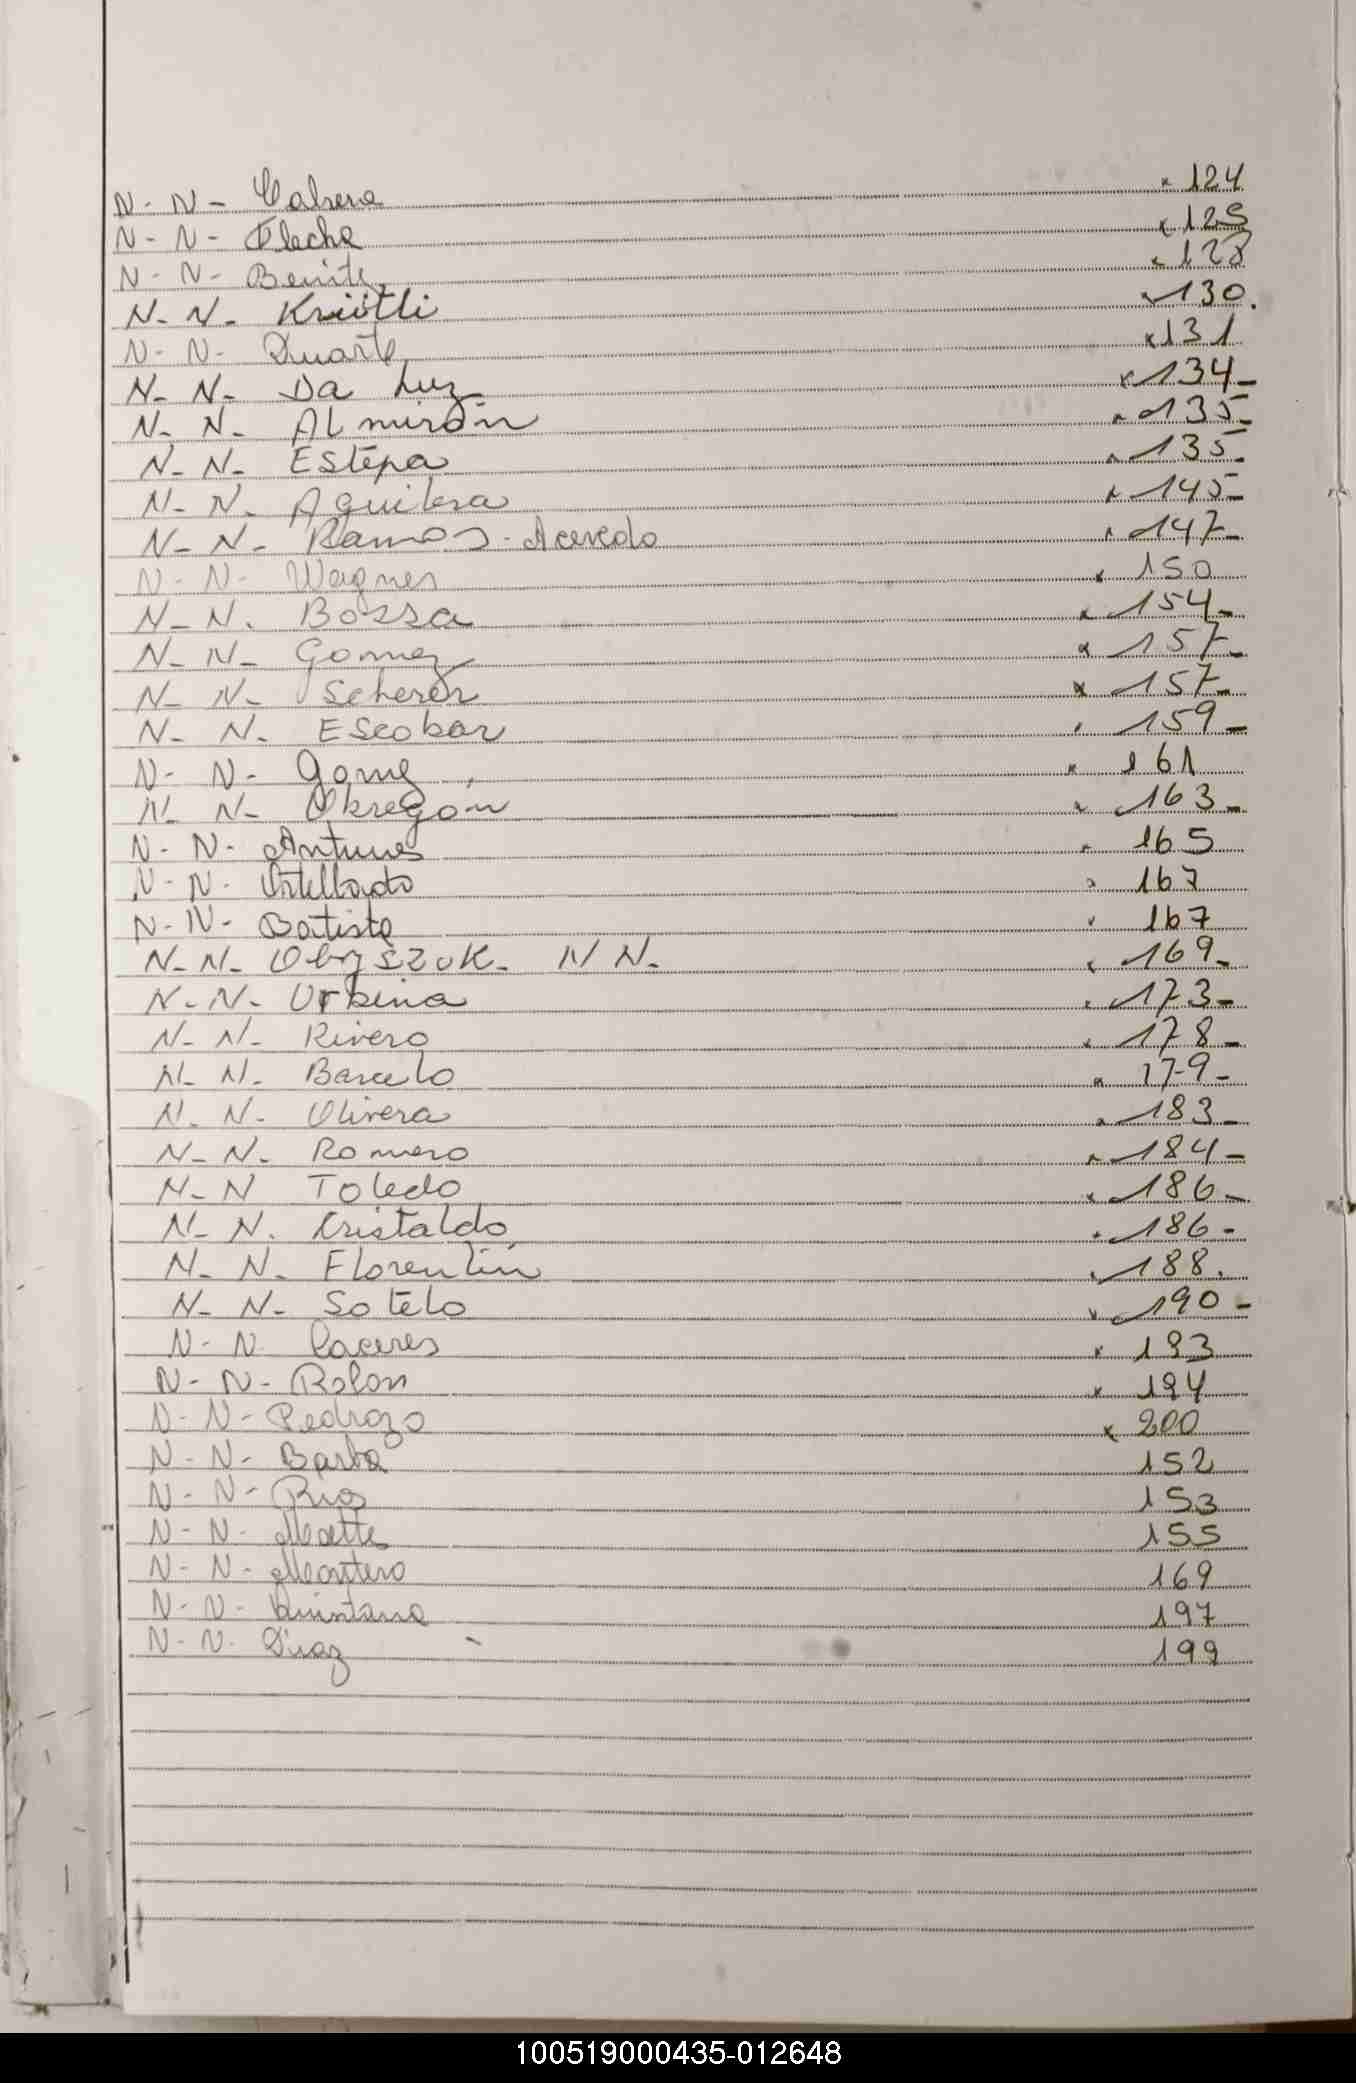 N - N - Cabrera x 124
N - N - Flecha x 125
N - N - Benitez x 128
N - N - x 130.
N - N - Duarte x 131
N - N - Da Luz x 134 -
N - N - Almirón x 135 -
N - N - Estepa x 135 -
N - N - Aguilera x 145 -
N - N - Ramos - Acevedo x 147 -
N - N - Wagner x 150
N - N - Bossa x 154 -
N - N - Gomez x 157 -
N - N - Scherer x 157 -
N - N - Escobar 159 -
N - N - Gomez x 161
N - N - Obregón x 163 -
N - N - Antunes 165
N - N - 167
N - N - Batista 167
N - N - Obyszuk - N N - 169 -
N - N - Urbina 173 -
N - N - Rivero 178 -
N - N - Barcelo x 179 -
N - N - Olivera 183 -
N - N - Romero 184 -
N - N Toledo x 186 -
N - N - Cristaldo 186 -
N - N - Florentín 188.
N - N - Sotelo x 190 -
N - N Caceres x 193
N - N - Rolon x 194
N - N - Pedrozo x 200
N - N - Barba 152
N - N - Rios 153
N - N - 155
N - N - Montero 169
N - N - Quintana 197
N - N - Diaz 199
100519000435-012648